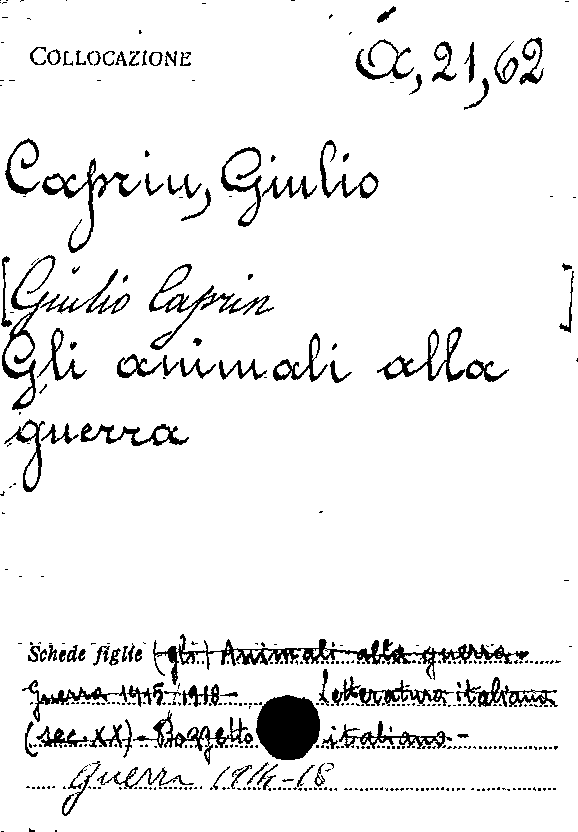 COLLOCAZIONE Ó α, 21, 62
Caprin, Giulio
[Giulio Caprin]
Gli animali alla
guerra
Schede figlie (gli) Animali alla guerra-
Guerra 1915/1918- Letteratura italiana
(sec. XX) - Bozzetto italiano -
Guerra 1914-18